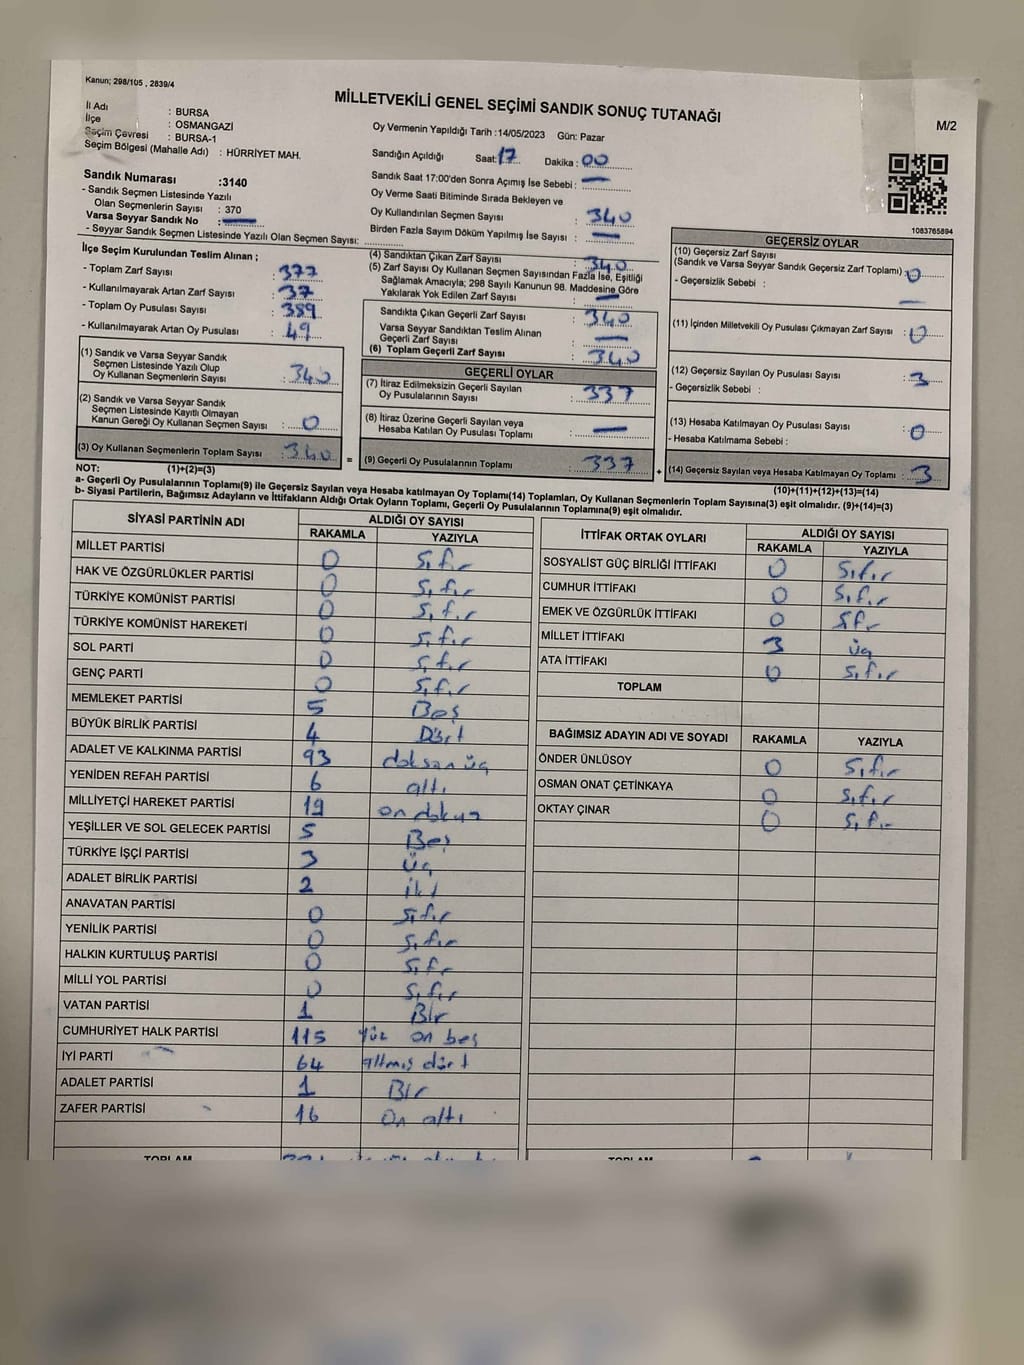 Kanun; 298/105 , 2839/4
MİLLETVEKİLİ GENEL SEÇİMİ SANDIK SONUÇ TUTANAĞI
M/2
İl Adı : BURSA
İlçe : OSMANGAZİ
Seçim Çevresi : BURSA-1
Seçim Bölgesi (Mahalle Adı) : HÜRRİYET MAH.
Sandık Numarası :3140
- Sandık Seçmen Listesinde Yazılı
Olan Seçmenlerin Sayısı : 370
Varsa Seyyar Sandık No :
- Seyyar Sandık Seçmen Listesinde Yazılı Olan Seçmen Sayısı:
Oy Vermenin Yapıldığı Tarih :14/05/2023 Gün: Pazar
Sandığın Açıldığı Saat: 17 Dakika : 00
Sandık Saat 17:00'den Sonra Açımış İse Sebebi :
Oy Verme Saati Bitiminde Sırada Bekleyen ve
Oy Kullandırılan Seçmen Sayısı : 340
Birden Fazla Sayım Döküm Yapılmış İse Sayısı :
1083765894
İlçe Seçim Kurulundan Teslim Alınan ;
- Toplam Zarf Sayısı : 377
- Kullanılmayarak Artan Zarf Sayısı : 37
- Toplam Oy Pusulası Sayısı : 389
- Kullanılmayarak Artan Oy Pusulası : 49
(1) Sandık ve Varsa Seyyar Sandık
Seçmen Listesinde Yazılı Olup
Oy Kullanan Seçmenlerin Sayısı : 340
(2) Sandık ve Varsa Seyyar Sandık
Seçmen Listesinde Kayıtlı Olmayan
Kanun Gereği Oy Kullanan Seçmen Sayısı : 0
(3) Oy Kullanan Seçmenlerin Toplam Sayısı : 340
(4) Sandıktan Çıkan Zarf Sayısı : 340
(5) Zarf Sayısı Oy Kullanan Seçmen Sayısından Fazla İse, Eşitliği
Sağlamak Amacıyla; 298 Sayılı Kanunun 98. Maddesine Göre
Yakılarak Yok Edilen Zarf Sayısı :
Sandıkta Çıkan Geçerli Zarf Sayısı : 340
Varsa Seyyar Sandıktan Teslim Alınan
Geçerli Zarf Sayısı :
(6) Toplam Geçerli Zarf Sayısı : 340
GEÇERLİ OYLAR
(7) İtiraz Edilmeksizin Geçerli Sayılan
Oy Pusulalarının Sayısı : 337
(8) İtiraz Üzerine Geçerli Sayılan veya
Hesaba Katılan Oy Pusulası Toplamı :
= (9) Geçerli Oy Pusulalarının Toplamı : 337 +
GEÇERSİZ OYLAR
(10) Geçersiz Zarf Sayısı
(Sandık ve Varsa Seyyar Sandık Geçersiz Zarf Toplamı) : 0
- Geçersizlik Sebebi :
(11) İçinden Milletvekili Oy Pusulası Çıkmayan Zarf Sayısı : 0
(12) Geçersiz Sayılan Oy Pusulası Sayısı : 3
- Geçersizlik Sebebi :
(13) Hesaba Katılmayan Oy Pusulası Sayısı : 0
- Hesaba Katılmama Sebebi :
(14) Geçersiz Sayılan veya Hesaba Katılmayan Oy Toplamı : 3
NOT: (1)+(2)=(3)
(10)+(11)+(12)+(13)=(14)
a- Geçerli Oy Pusulalarının Toplamı(9) ile Geçersiz Sayılan veya Hesaba katılmayan Oy Toplamı(14) Toplamları, Oy Kullanan Seçmenlerin Toplam Sayısına(3) eşit olmalıdır. (9)+(14)=(3)
b- Siyasi Partilerin, Bağımsız Adayların ve İttifakların Aldığı Ortak Oyların Toplamı, Geçerli Oy Pusulalarının Toplamına(9) eşit olmalıdır.
SİYASİ PARTİNİN ADI ALDIĞI OY SAYISI
RAKAMLA YAZIYLA
MİLLET PARTİSİ 0 Sıfır
HAK VE ÖZGÜRLÜKLER PARTİSİ 0 Sıfır
TÜRKİYE KOMÜNİST PARTİSİ 0 Sıfır
TÜRKİYE KOMÜNİST HAREKETİ 0 Sıfır
SOL PARTİ 0 Sıfır
GENÇ PARTİ 0 Sıfır
MEMLEKET PARTİSİ 5 Beş
BÜYÜK BİRLİK PARTİSİ 4 Dört
ADALET VE KALKINMA PARTİSİ 93 doksan üç
YENİDEN REFAH PARTİSİ 6 altı
MİLLİYETÇİ HAREKET PARTİSİ 19 on dokuz
YEŞİLLER VE SOL GELECEK PARTİSİ 5 Beş
TÜRKİYE İŞÇİ PARTİSİ 3 üç
ADALET BİRLİK PARTİSİ 2 iki
ANAVATAN PARTİSİ 0 Sıfır
YENİLİK PARTİSİ 0 Sıfır
HALKIN KURTULUŞ PARTİSİ 0 Sıfır
MİLLİ YOL PARTİSİ 0 Sıfır
VATAN PARTİSİ 1 Bir
CUMHURİYET HALK PARTİSİ 115 yüz on beş
İYİ PARTİ 64 altmış dört
ADALET PARTİSİ 1 Bir
ZAFER PARTİSİ 16 on altı
TOPLAM
İTTİFAK ORTAK OYLARI ALDIĞI OY SAYISI
RAKAMLA YAZIYLA
SOSYALİST GÜÇ BİRLİĞİ İTTİFAKI 0 Sıfır
CUMHUR İTTİFAKI 0 Sıfır
EMEK VE ÖZGÜRLÜK İTTİFAKI 0 Sıfır
MİLLET İTTİFAKI 3 üç
ATA İTTİFAKI 0 Sıfır
TOPLAM
BAĞIMSIZ ADAYIN ADI VE SOYADI RAKAMLA YAZIYLA
ÖNDER ÜNLÜSOY 0 Sıfır
OSMAN ONAT ÇETİNKAYA 0 Sıfır
OKTAY ÇINAR 0 Sıfır
TOPLAM